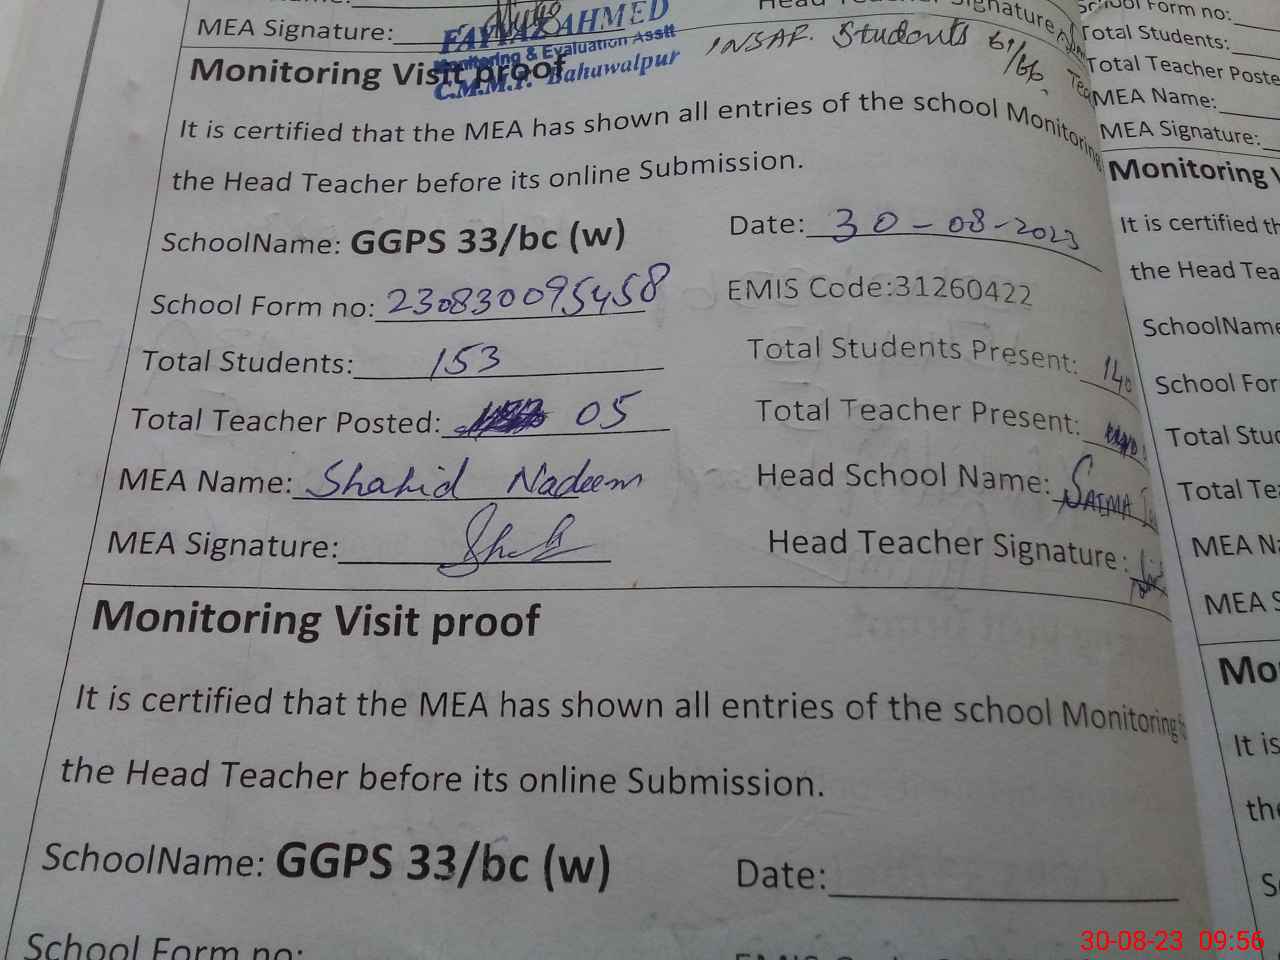 MEA Signature:
FAYYAZ AHMED
Monitoring & Evaluation Asstt
C.M.M.F. Bahawalpur
INSAF. Students 61/66
Monitoring Visit proof
It is certified that the MEA has shown all entries of the school Monitoring
the Head Teacher before its online Submission.
SchoolName: GGPS 33/bc (w) Date: 30-08-2023
School Form no: 230830095458 EMIS Code:31260422
Total Students: 153 Total Students Present: 140
Total Teacher Posted: 05 Total Teacher Present:
MEA Name: Shahid Nadeem Head School Name: SALMA
MEA Signature: Head Teacher Signature:
Monitoring Visit proof
It is certified that the MEA has shown all entries of the school Monitoring
the Head Teacher before its online Submission.
SchoolName: GGPS 33/bc (w) Date:
School Form no:
School Form no:
Total Students:
Total Teacher Poste
MEA Name:
MEA Signature:
Monitoring
It is certified th
the Head Tea
SchoolName
School For
Total Stud
Total Te
MEA Na
MEA S
Mo
It is
the
S
30-08-23 09:56